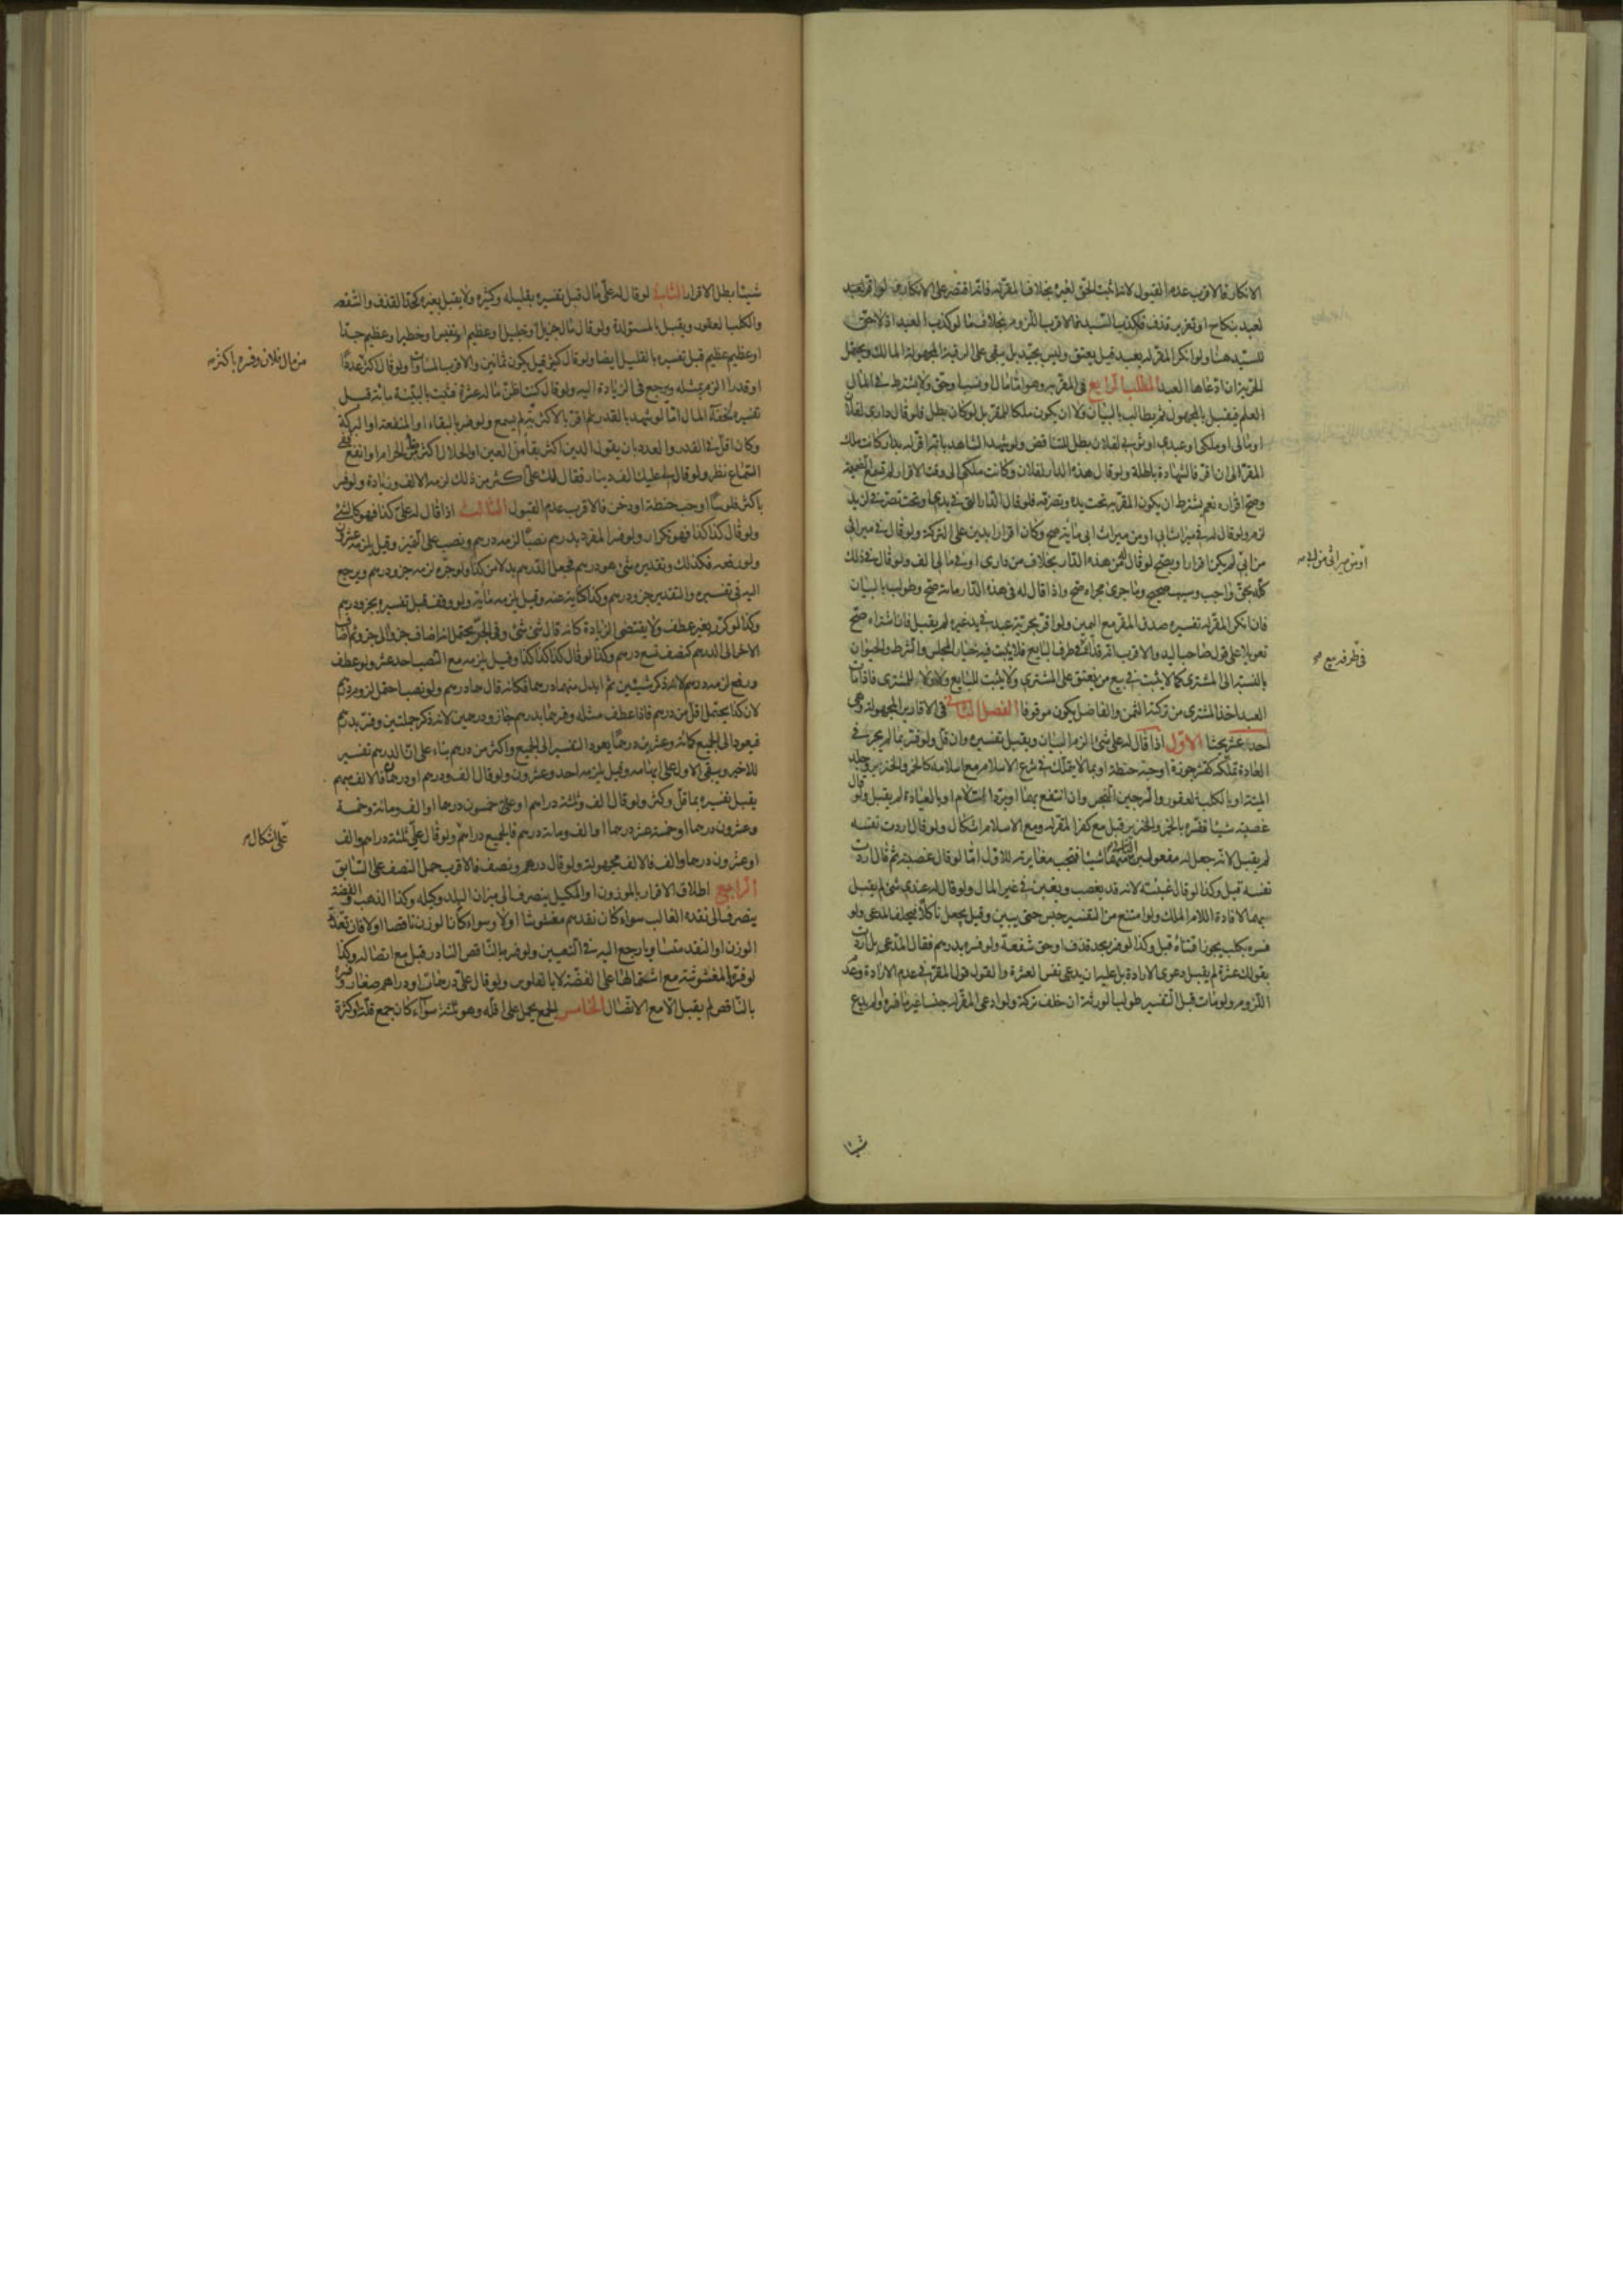 الانكار فالاقرب عدم القبول لانه اثبت الحق لغيره بخلاف المقر له فانه اقتصر على الانكار ولو اقر لعبد
لعبد بنكاح او تعزير قذف فكذب السيد فالاقرب اللزوم بخلاف ما لو كذب العبد اذ لا حق
للسيد هنا ولو انكر المقر له بعبد قيل يعتق وليس بجيد بل يبقى على الرقية المجهولة المالك ويحتمل
الحرية ان ادعاها العبد المطلب الرابع في المقر به وهو اما مال او نسب او حق ولا يشترط في المال
العلم فيقبل بالمجهول ثم يطالب بالبيان ولا ان يكون ملكا للمقر بل لو كان بطل فلو قال داري لفلان
او مالي او ملكي او عبدي او ثوبي لفلان بطل للتناقض ولو شهد الشاهد بانه اقر له بدار وكانت ملك
المقر الى ان اقر فالشهادة باطلة ولو قال هذه الدار لفلان وكانت ملكي الى وقت الاقرار لم
وصح اقراره نعم يشترط ان يكون المقر به تحت يده وتصرفه فلو قال الدار التي في يدي او تحت تصرفي لزيد
لزم ولو قال له في ميراث ابي او من ميراث ابي مائة صح وكان اقرارا بدين على التركة ولو قال في ميراثي
من ابي لم يكن اقرارا ويصح لو قال له من هذه الدار بخلاف من داري او في مالي الف ولو قال في ذلك
كله بحق واجب وسبب صحيح وما جرى مجراه صح واذا قال له في هذه الدار مائة صح وطولب بالبيان
فان انكر المقر له تفسيره صدق المقر مع اليمين ولو اقر بحرية عبد في يد غيره لم يقبل فان اشتراه صح
تعويلا على قول صاحب اليد والاقرب انه فداء في طرف البايع فلا يثبت فيه خيار المجلس والشرط والحيوان
بالنسبة الى المشتري كما لا يثبت في بيع من يعتق على المشتري ولا يثبت للبايع ولا ولاء للمشتري فاذا مات
العبد اخذ المشتري من تركته الثمن والفاضل يكون موقوفا الفصل الثاني في الاقارير المجهولة وهي
احد عشر بحثا الاول اذا قال له علي شئ الزم البيان ويقبل تفسيره وان قل ولو فسر بما لم يجر في
العادة تملكه كقشر جوزة او حبة حنطة او بما لا يتملك في شرع الاسلام مع اسلامه كالخمر والخنزير وجلد
الميتة او بالكلب العقور والسرجين النجس وان انتفع بهما او برد السلام او بالعيادة لم يقبل ولو قال
غصبته شيئا ففسره بالخمر والخنزير قبل مع كفر المقر له ومع الاسلام اشكال ولو قال اردت نفسه
لم يقبل لانه جعل له مفعولين الثاني منهما شيئا فتجب مغايرته للاول اما لو قال غصبته ثم قال اردت
نفسه قبل وكذا لو قال غبنته لانه قد يغصب ويغبن في غير المال ولو قال له عندي شئ لم يقبل
بهما لافادة اللام الملك ولو امتنع من التفسير حبس حتى يبين وقيل يجعل ناكلا فيحلف المدعي ولو
فسره بكلب يجوز اقتناؤه قبل وكذا لو فسر بحد قذف او حق شفعة ولو فسره بدرهم فقال المدعي بل اردت
بقولك عشرة لم يقبل دعوى الارادة بل عليه ان يدعي نفس العشرة والقول قول المقر في عدم الارادة وعدم
اللزوم ولو مات قبل التفسير طولب الورثة ان خلف تركة ولو ادعى المقر له جنسا غير ما فسره او لم يدع
او من ميراثي من ابي
في طرفه بيع صح
شيئا
شيئا بطل الاقرار الثاني لو قال له علي مال قبل تفسيره بقليله وكثيره ولا يقبل بغيره كحد القذف والشفعة
والكلب العقور ويقبل بالمستولدة ولو قال مال جزيل او جليل او عظيم او نفيس او خطير او عظيم جدا
او عظيم عظيم قبل تفسيره بالقليل ايضا ولو قال كثير قيل يكون ثمانين والاقرب المساواة ولو قال اكثر عددا
او قدرا الزم بمثله ويرجع في الزيادة اليه ولو قال كنت اظن ماله عشرة فثبت بالبينة مائة قبل
تفسيره لخفاء المال اما لو شهد بالقدر ثم اقر بالاكثرية لم يسمع ولو فسر بالبقاء او المنفعة او البركة
وكان اقل في القدر والعدد بان يقول الدين اكثر بقاء من العين او الحلال اكثر من الحرام او انفع ففي
السماع نظر ولو قال لي عليك الف دينار فقال لك علي اكثر من ذلك لزمه الالف وزيادة ولو فسر
باكثر فلوسا او حب حنطة او دخن فالاقرب عدم القبول الثالث اذا قال له علي كذا فهو كالشئ
ولو قال كذا كذا فهو تكرار ولو فسر المفرد بدرهم نصبا لزمه درهم ونصب على التمييز وقيل يلزمه عشرون
ولو رفعه فكذلك وتقديره شئ هو درهم فجعل الدرهم بدلا من كذا ولو جره لزمه جزء درهم ويرجع
اليه في تفسيره والتقدير جزء درهم وكذا كناية عنه وقيل يلزمه مائة ولو وقف قبل تفسيره بجزء درهم
وكذا لو كرر بغير عطف ولا يقتضي الزيادة كانه قال شئ شئ وفي الجر يحتمل انه اضاف جزءا الى جزء ثم اضاف
الاخر الى الدرهم كنصف تسع درهم وكذا لو قال كذا كذا كذا وقيل يلزمه مع النصب احد عشر ولو عطف
ورفع لزمه درهم لانه ذكر شيئين ثم ابدل منهما درهما فكانه قال هما درهم ولو نصب احتمل لزوم درهم
لان كذا يحتمل اقل من درهم فاذا عطف مثله وفسرهما بدرهم جاز ودرهمين لانه ذكر جملتين وفسر بدرهم
فيعود الى الجميع كمائة وعشرين درهما يعود التفسير الى الجميع واكثر من درهم بناء على ان الدرهم تفسير
للاخير ويبقى الاول على ابهامه وقيل يلزمه احد وعشرون ولو قال الف ودرهم او درهمان فالالف مبهم
يقبل تفسيره بما قل وكثر ولو قال الف وثلثة دراهم او علي خمسون درهما او الف ومائة وخمسة
وعشرون درهما او خمسة عشر درهما او الف ومائة درهم فالجميع دراهم ولو قال علي ثلثة دراهم والف
او عشرون درهما والف فالالف مجهولة ولو قال درهم ونصف فالاقرب حمل النصف على السابق
الرابع اطلاق الاقرار بالموزون او المكيل ينصرف الى ميزان البلد وكيله وكذا الذهب والفضة
ينصرف الى نقده الغالب سواء كان نقدهم مغشوشا او لا وسواء كان الوزن ناقصا او لا فان تعدد
الوزن او النقد متساويا رجع اليه في التعيين ولو فسر بالناقص النادر قبل مع اتصاله وكذا
لو فسر بالمغشوشة مع اشتمالها على الفضة لا بالفلوس ولو قال علي درهمات او دراهم صغار وفسره
بالناقص لم يقبل الا مع الاتصال الخامس الجمع يحمل على اقله وهو ثلثة سواء كان جمع قلة او كثرة
من مال فلان وفسره باكثر
على اشكال